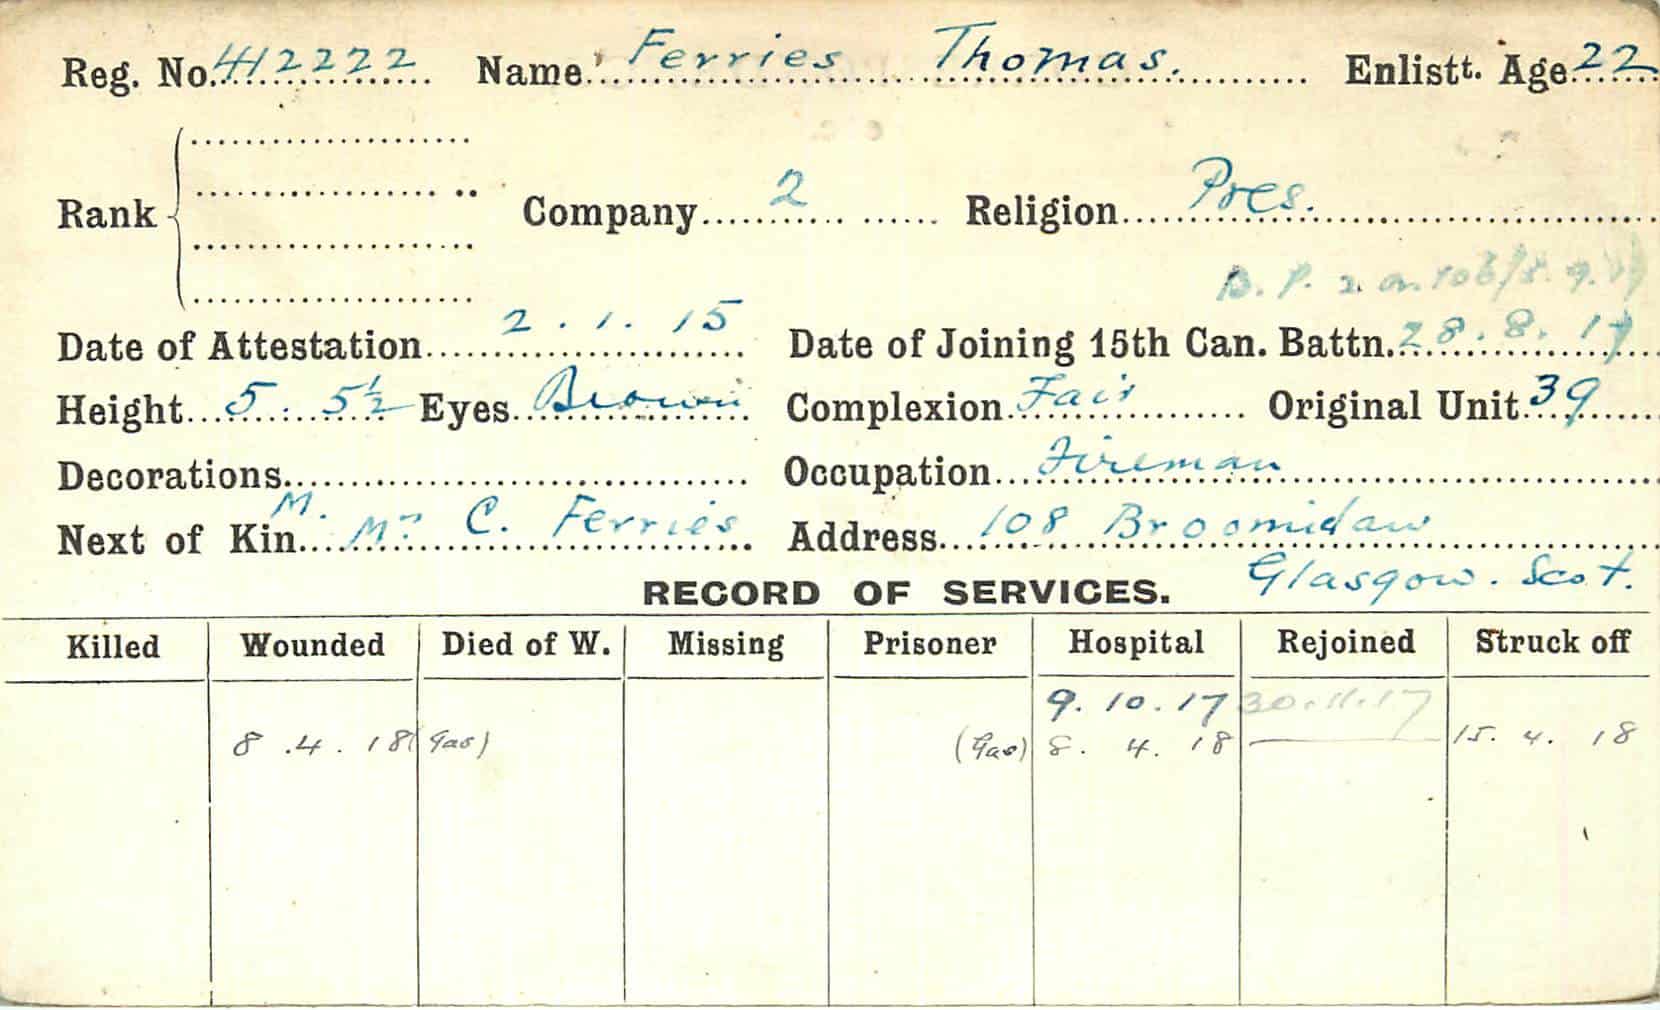 Reg. No. 412222 Name Ferries Thomas. Enlistt. Age 22
Rank Company 2 Religion Pres.
Date of Attestation 2.1.15 Date of Joining 15th Can. Battn. 28.8.17
Height 5.5½ Eyes Brown Complexion Fair Original Unit 39
Decorations Occupation Fireman
M.
Next of Kin Mrs C. Ferries Address 108 Broomielaw
Glasgow. Scot.
RECORD OF SERVICES.
Killed Wounded Died of W. Missing Prisoner Hospital Rejoined Struck off
9.10.17 30.11.17
8.4.18 (Gas) (Gas) 8.4.18 — 15.4.18